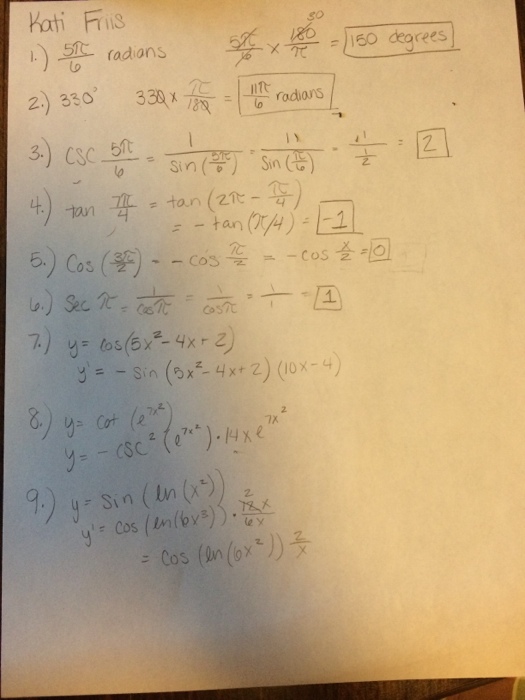 Kati Friis
1.) 5π/6 radians 5π/6 × 180/π 30 = 150 degrees
2.) 330° 330 × π/180 = 11π/6 radians
3.) CSC 5π/6 = 1/sin(5π/6) = 1/sin(π/6) = 1/(1/2) = 2
4.) tan 7π/4 = tan (2π - π/4)
= - tan (π/4) = -1
5.) Cos (3π/2) = - cos π/2 = - cos π/2 = 0
6.) Sec π = 1/cosπ = 1/cosπ = 1/1 = 1
7.) y = cos(5x² - 4x + 2)
y' = - sin (5x² - 4x + 2) (10x - 4)
8.) y = cot (e^7x²)
y = - csc² (e^7x²) · 14xe^7x²
9.) y = sin (ln (x²))
y' = cos (ln(6x³)) · 2 12x/6x
= cos (ln (6x²)) 2/x